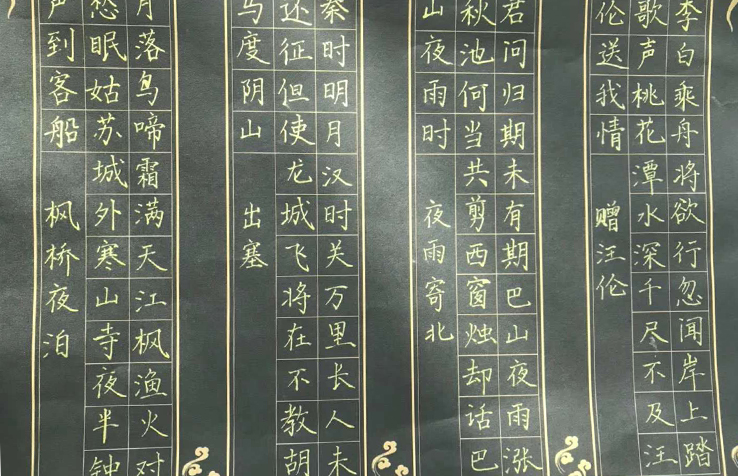 李白乘舟将欲行忽闻岸上踏
歌声桃花潭水深千尺不及汪
伦送我情
赠汪伦
君问归期未有期巴山夜雨涨
秋池何当共剪西窗烛却话巴
山夜雨时
夜雨寄北
秦时明月汉时关万里长人未
还征但使龙城飞将在不教胡
马度阴山
出塞
月落鸟啼霜满天江枫渔火对
愁眠姑苏城外寒山寺夜半钟
声到客船
枫桥夜泊